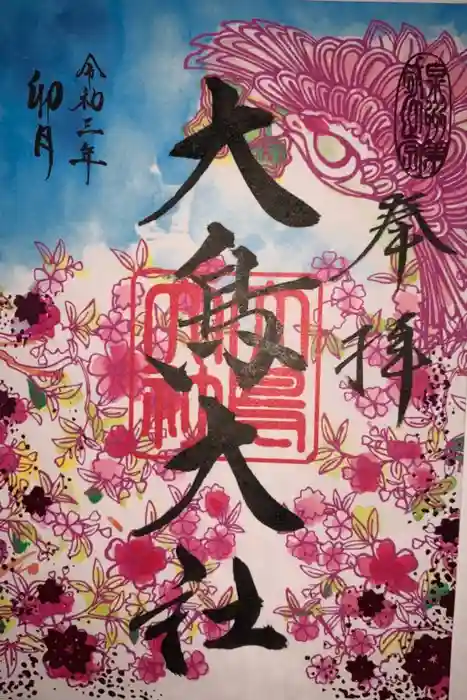 奉拝
大鳥大社
令和三年
卯月